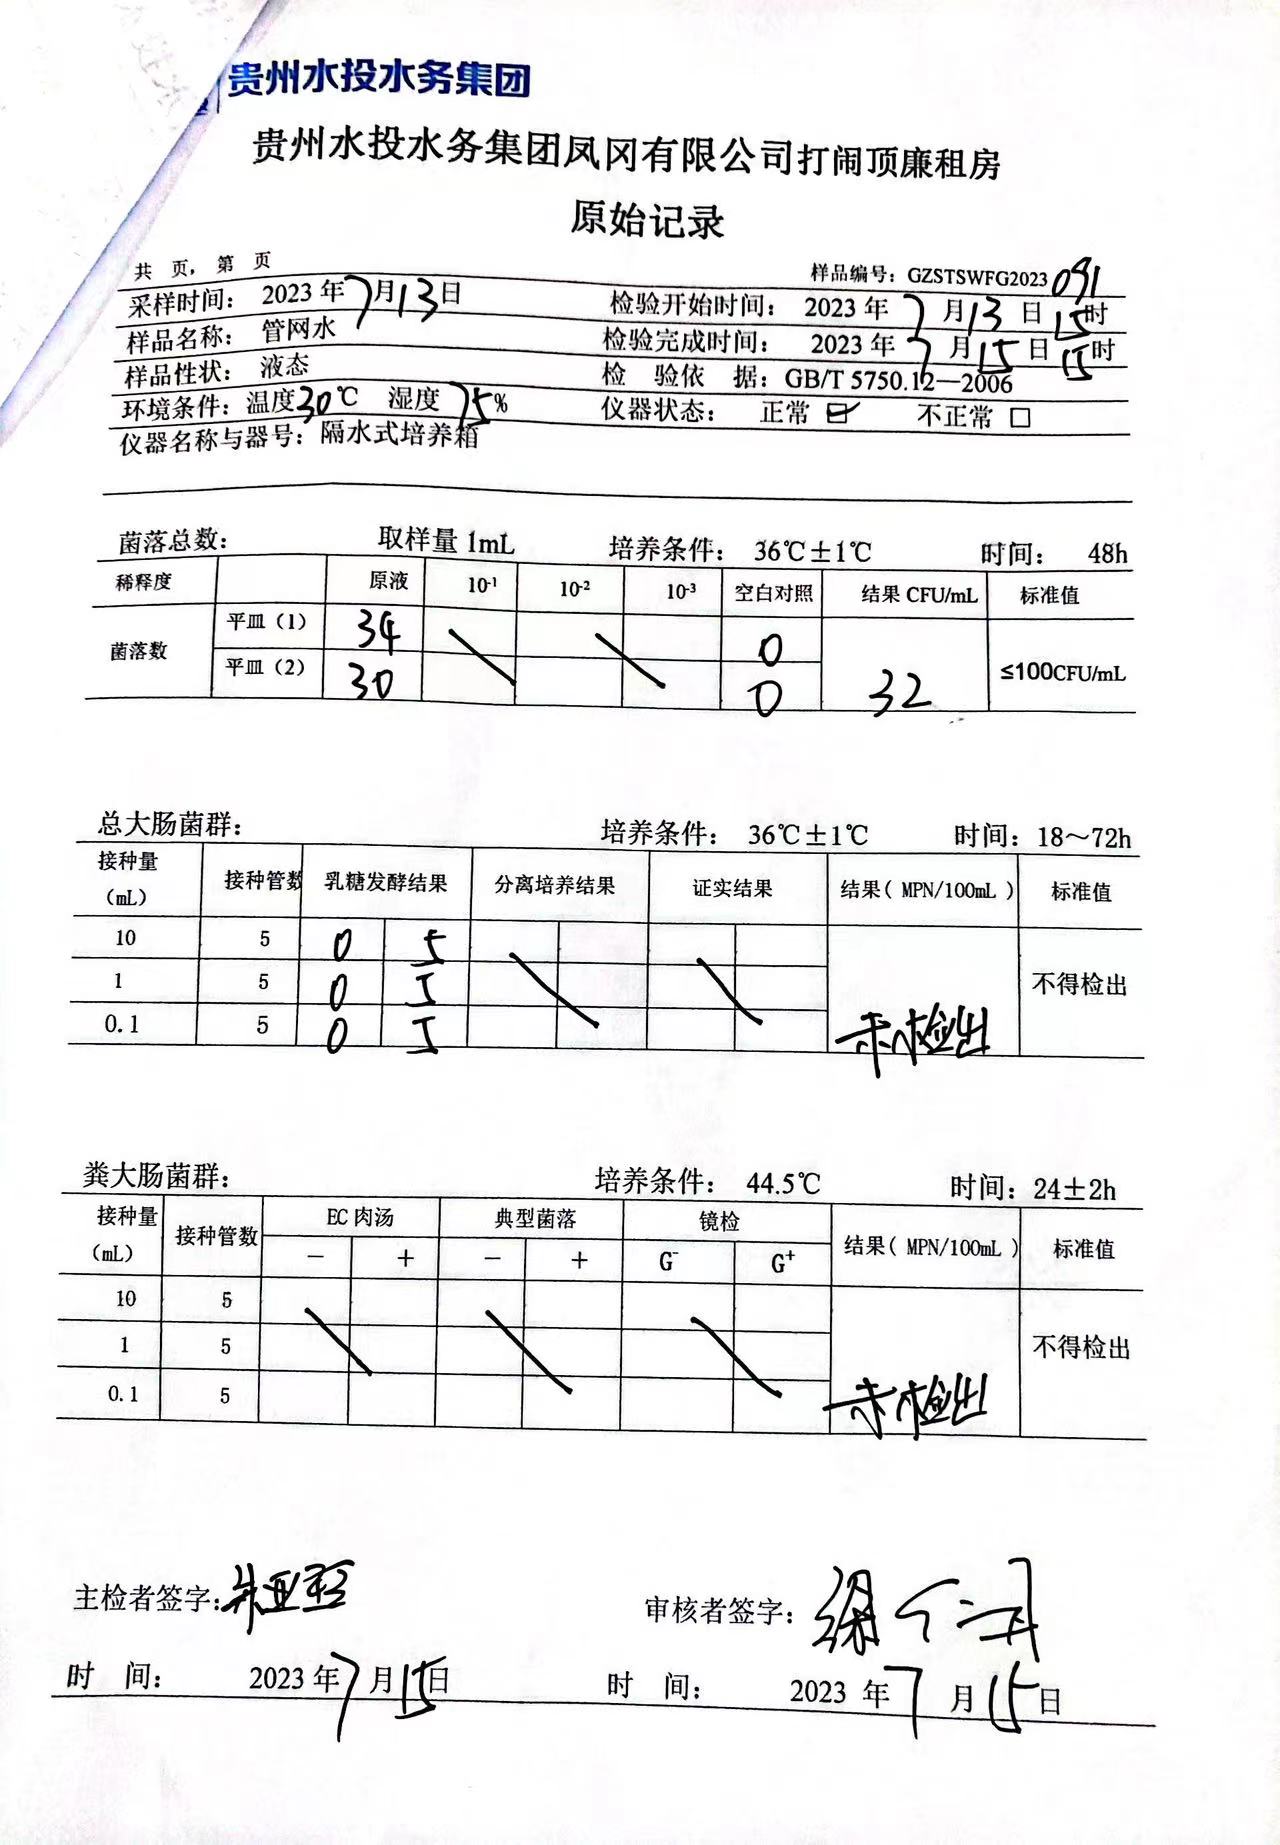 贵州水投水务集团
贵州水投水务集团凤冈有限公司打闹顶廉租房
原始记录
共 页，第 页 样品编号：GZSTSWFG2023 091
采样时间： 2023 年 7 月 13 日 检验开始时间： 2023 年 7 月 13 日 15 时
样品名称： 管网水 检验完成时间： 2023 年 7 月 15 日 15 时
样品性状： 液态 检 验依 据：GB/T 5750.12—2006
环境条件：温度 30 ℃ 湿度 75 % 仪器状态： 正常 ☑ 不正常 □
仪器名称与器号：隔水式培养箱
菌落总数： 取样量 1mL 培养条件： 36℃±1℃ 时间： 48h
稀释度 原液 10⁻¹ 10⁻² 10⁻³ 空白对照 结果 CFU/mL 标准值
菌落数 平皿（1） 34 0
平皿（2） 30 0 32 ≤100CFU/mL
总大肠菌群： 培养条件： 36℃±1℃ 时间：18～72h
接种量（mL） 接种管数 乳糖发酵结果 分离培养结果 证实结果 结果（ MPN/100mL ） 标准值
10 5 0 5
1 5 0 5 不得检出
0.1 5 0 5 未检出
粪大肠菌群： 培养条件： 44.5℃ 时间：24±2h
接种量（mL） 接种管数 EC 肉汤 典型菌落 镜检 结果（ MPN/100mL ） 标准值
— + — + G⁻ G⁺
10 5
1 5 不得检出
0.1 5 未检出
主检者签字： 审核者签字：
时 间： 2023 年 7 月 15 日 时 间： 2023 年 7 月 15 日